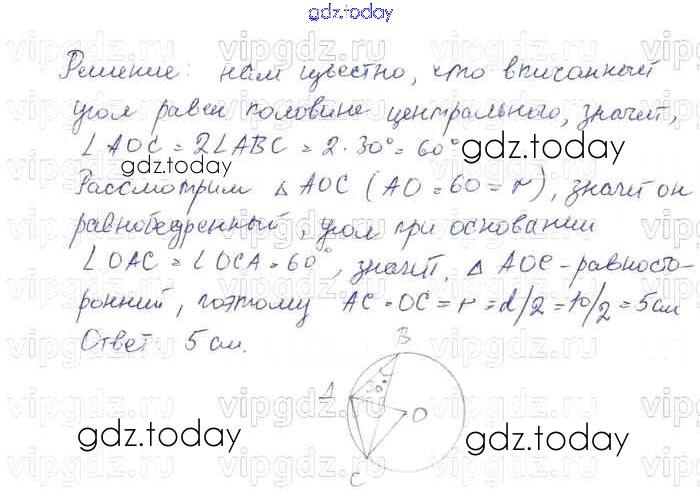 gdz.today
Решение: нам известно, что вписанный
угол равен половине центрального, значит,
∠AOC = 2∠ABC = 2·30° = 60°
Рассмотрим △ AOC (AO = 60 = r), значит он
равнобедренный, угол при основании
∠OAC = ∠OCA = 60°, значит, △ AOC - равносто-
ронний, поэтому AC = OC = r = d/2 = 10/2 = 5 см
Ответ: 5 см.
B
A
30°
O
C
gdz.today
gdz.today
gdz.today
gdz.today
vipgdz.ru